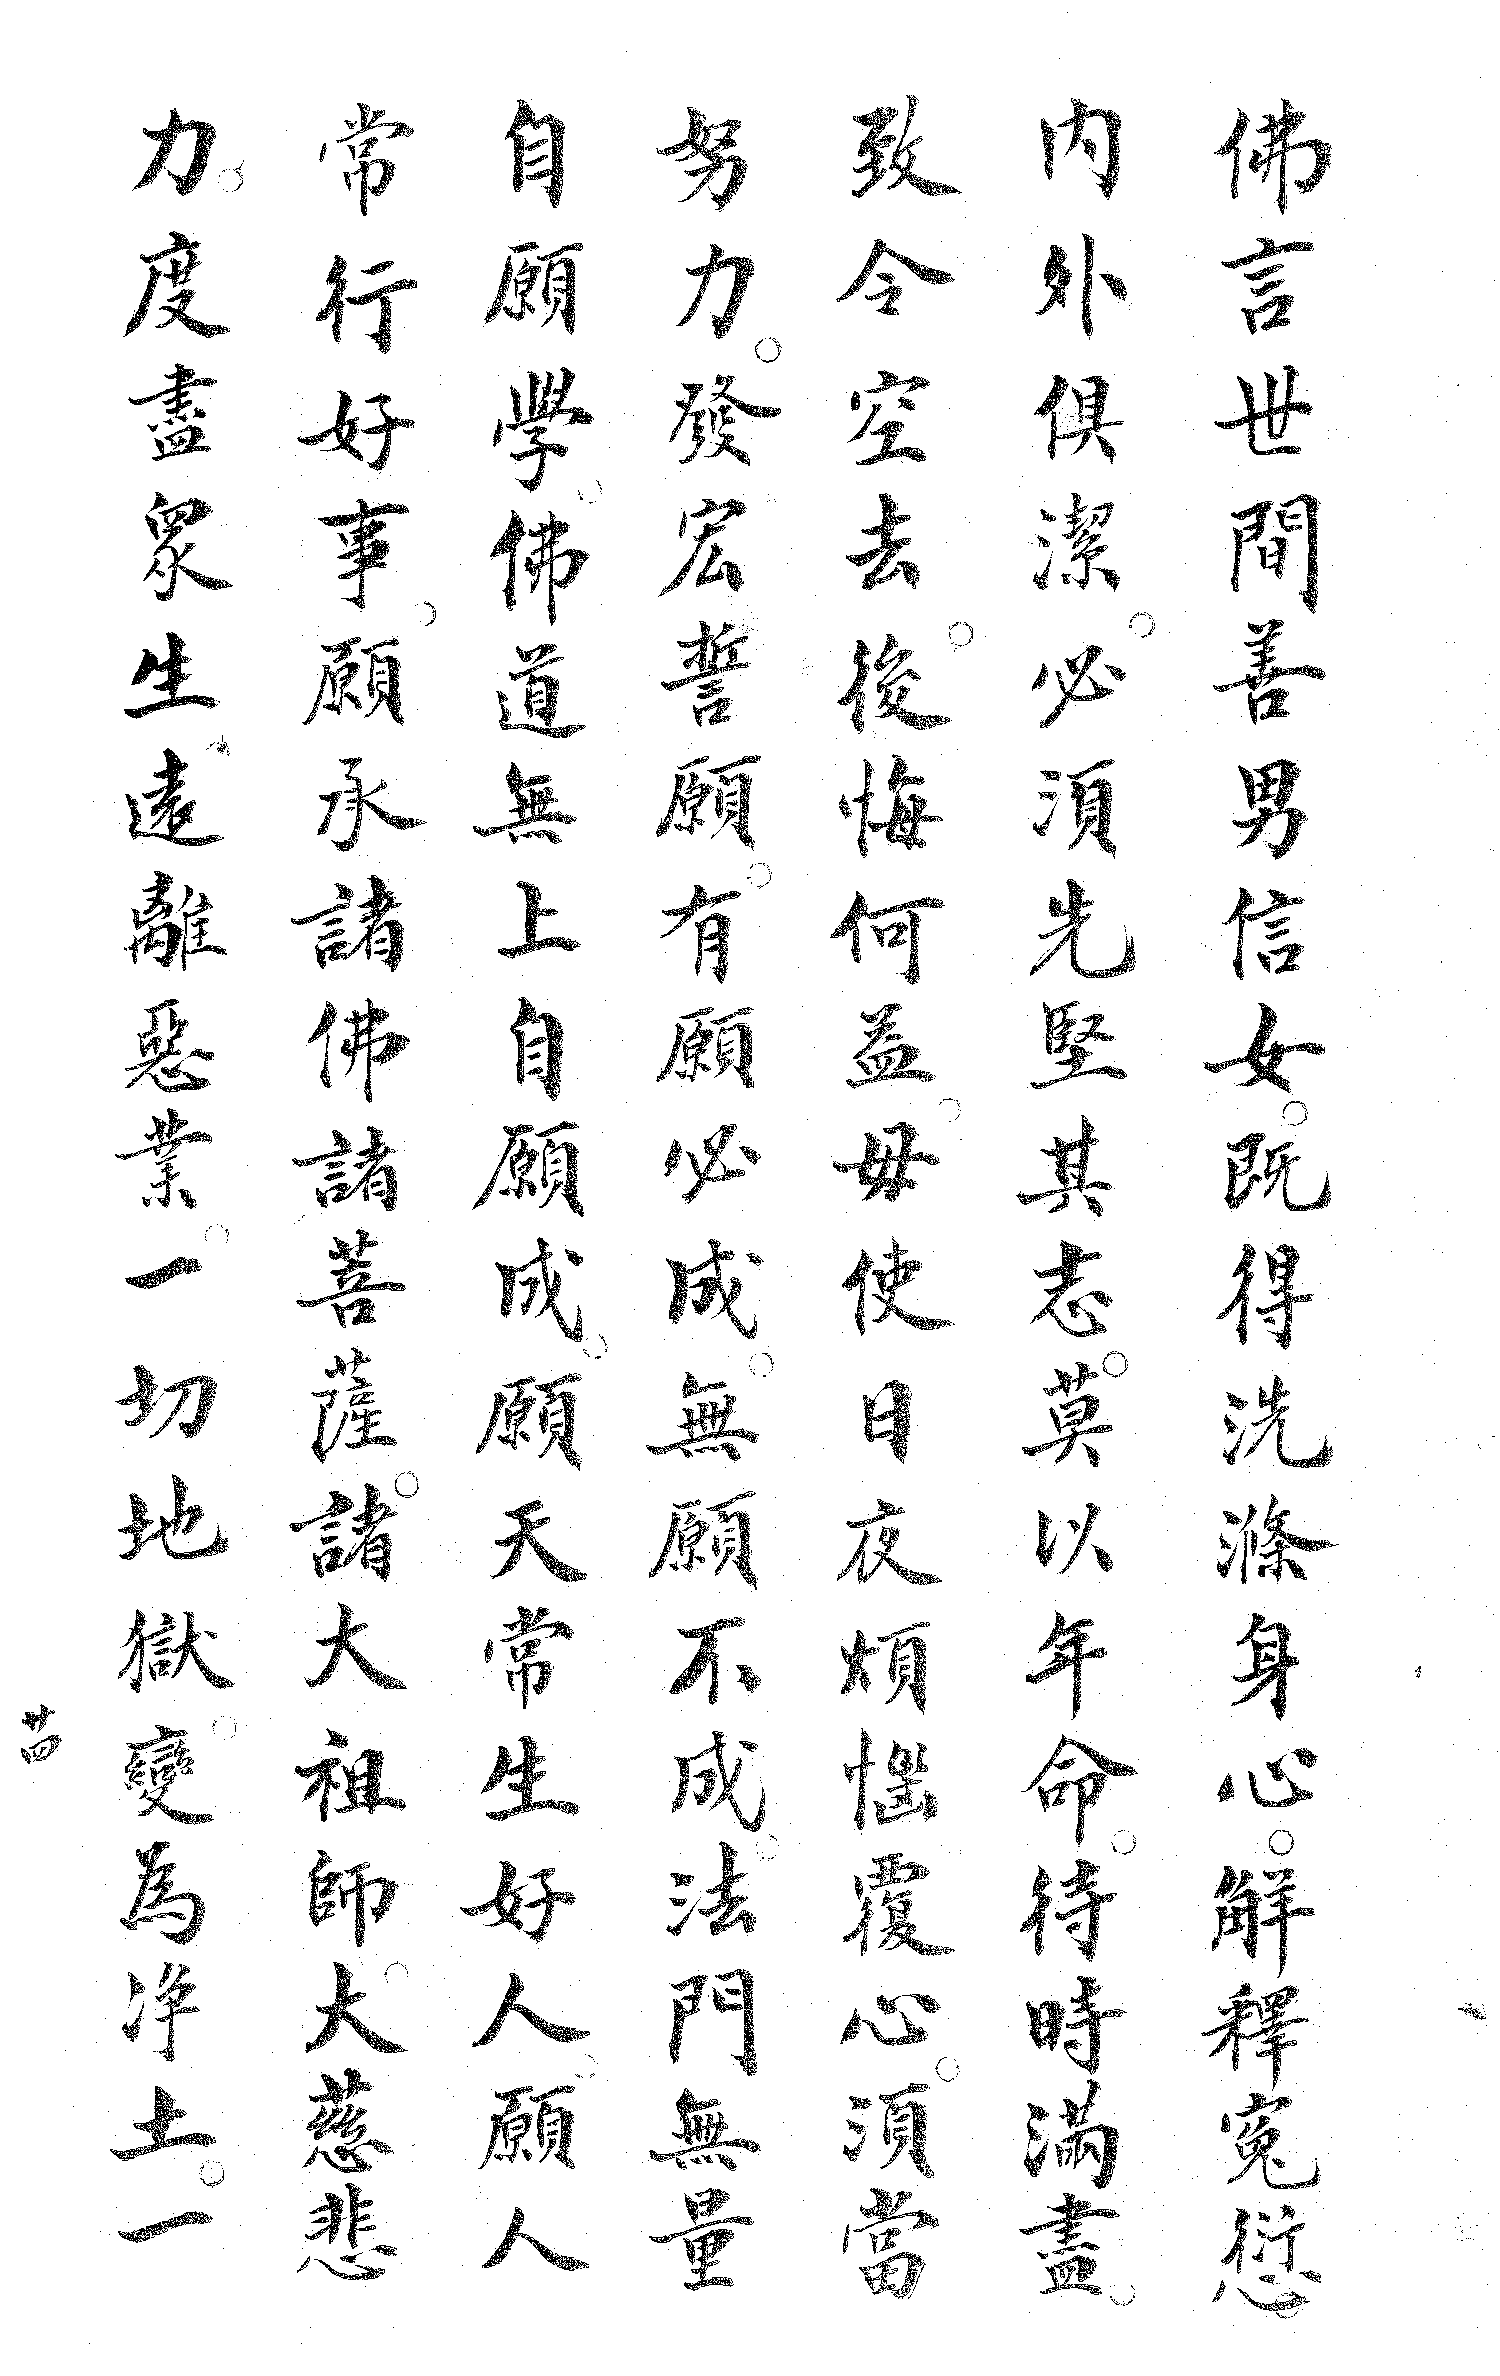 佛言世間善男信女。既得洗滌身心。解釋寃愆。
內外俱潔。必須先堅其志。莫以年命。待時滿盡。
致令空去。後悔何益。毋使日夜煩惱覆心。須當
努力。發宏誓願。有願必成。無願不成。法門無量
自願學。佛道無上自願成。願天常生好人。願人
常行好事。願承諸佛諸菩薩。諸大祖師。大慈悲
力。度盡眾生。遠離惡業。一切地獄。變為净土。一
廿四